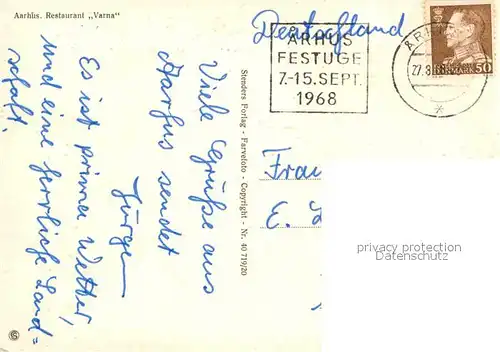 Aarhus. Restaurant „Varna"
Deutschland
ÅRHUS
FESTUGE
7.-15. SEPT.
1968
27.8.68
DANMARK 50
Viele Grüße aus
Aarhus sendet
Jürgen
Es ist prima Wetter,
und eine herrliche Land=
schaft.
Stenders Forlag - Farvefoto - Copyright - Nr. 40 719/20
Frau
E.
privacy protection
Datenschutz